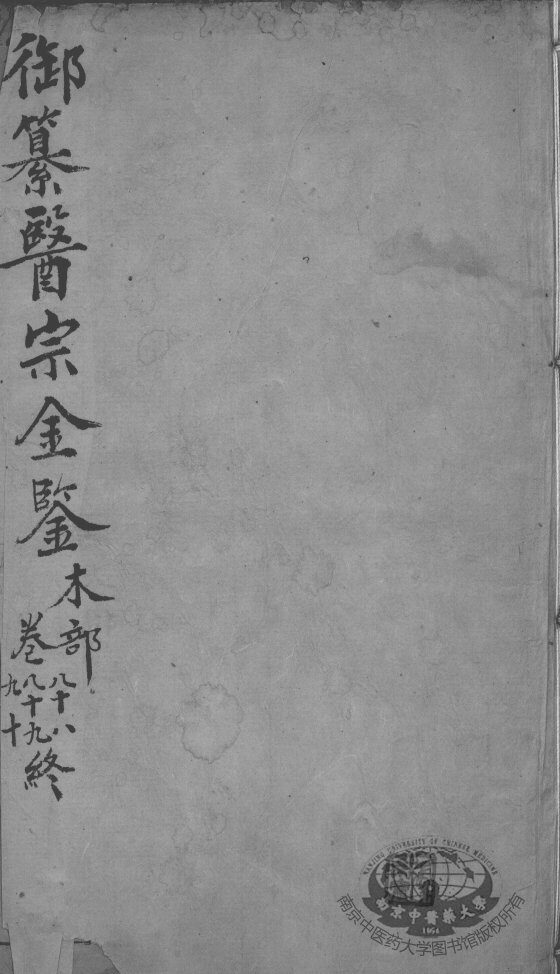 御纂醫宗金鑒
木部
八十八
卷
八十九
九十
終
NANJING UNIVERSITY OF CHINESE MEDICINE
南京中醫藥大學
1954
南京中医药大学图书馆版权所有